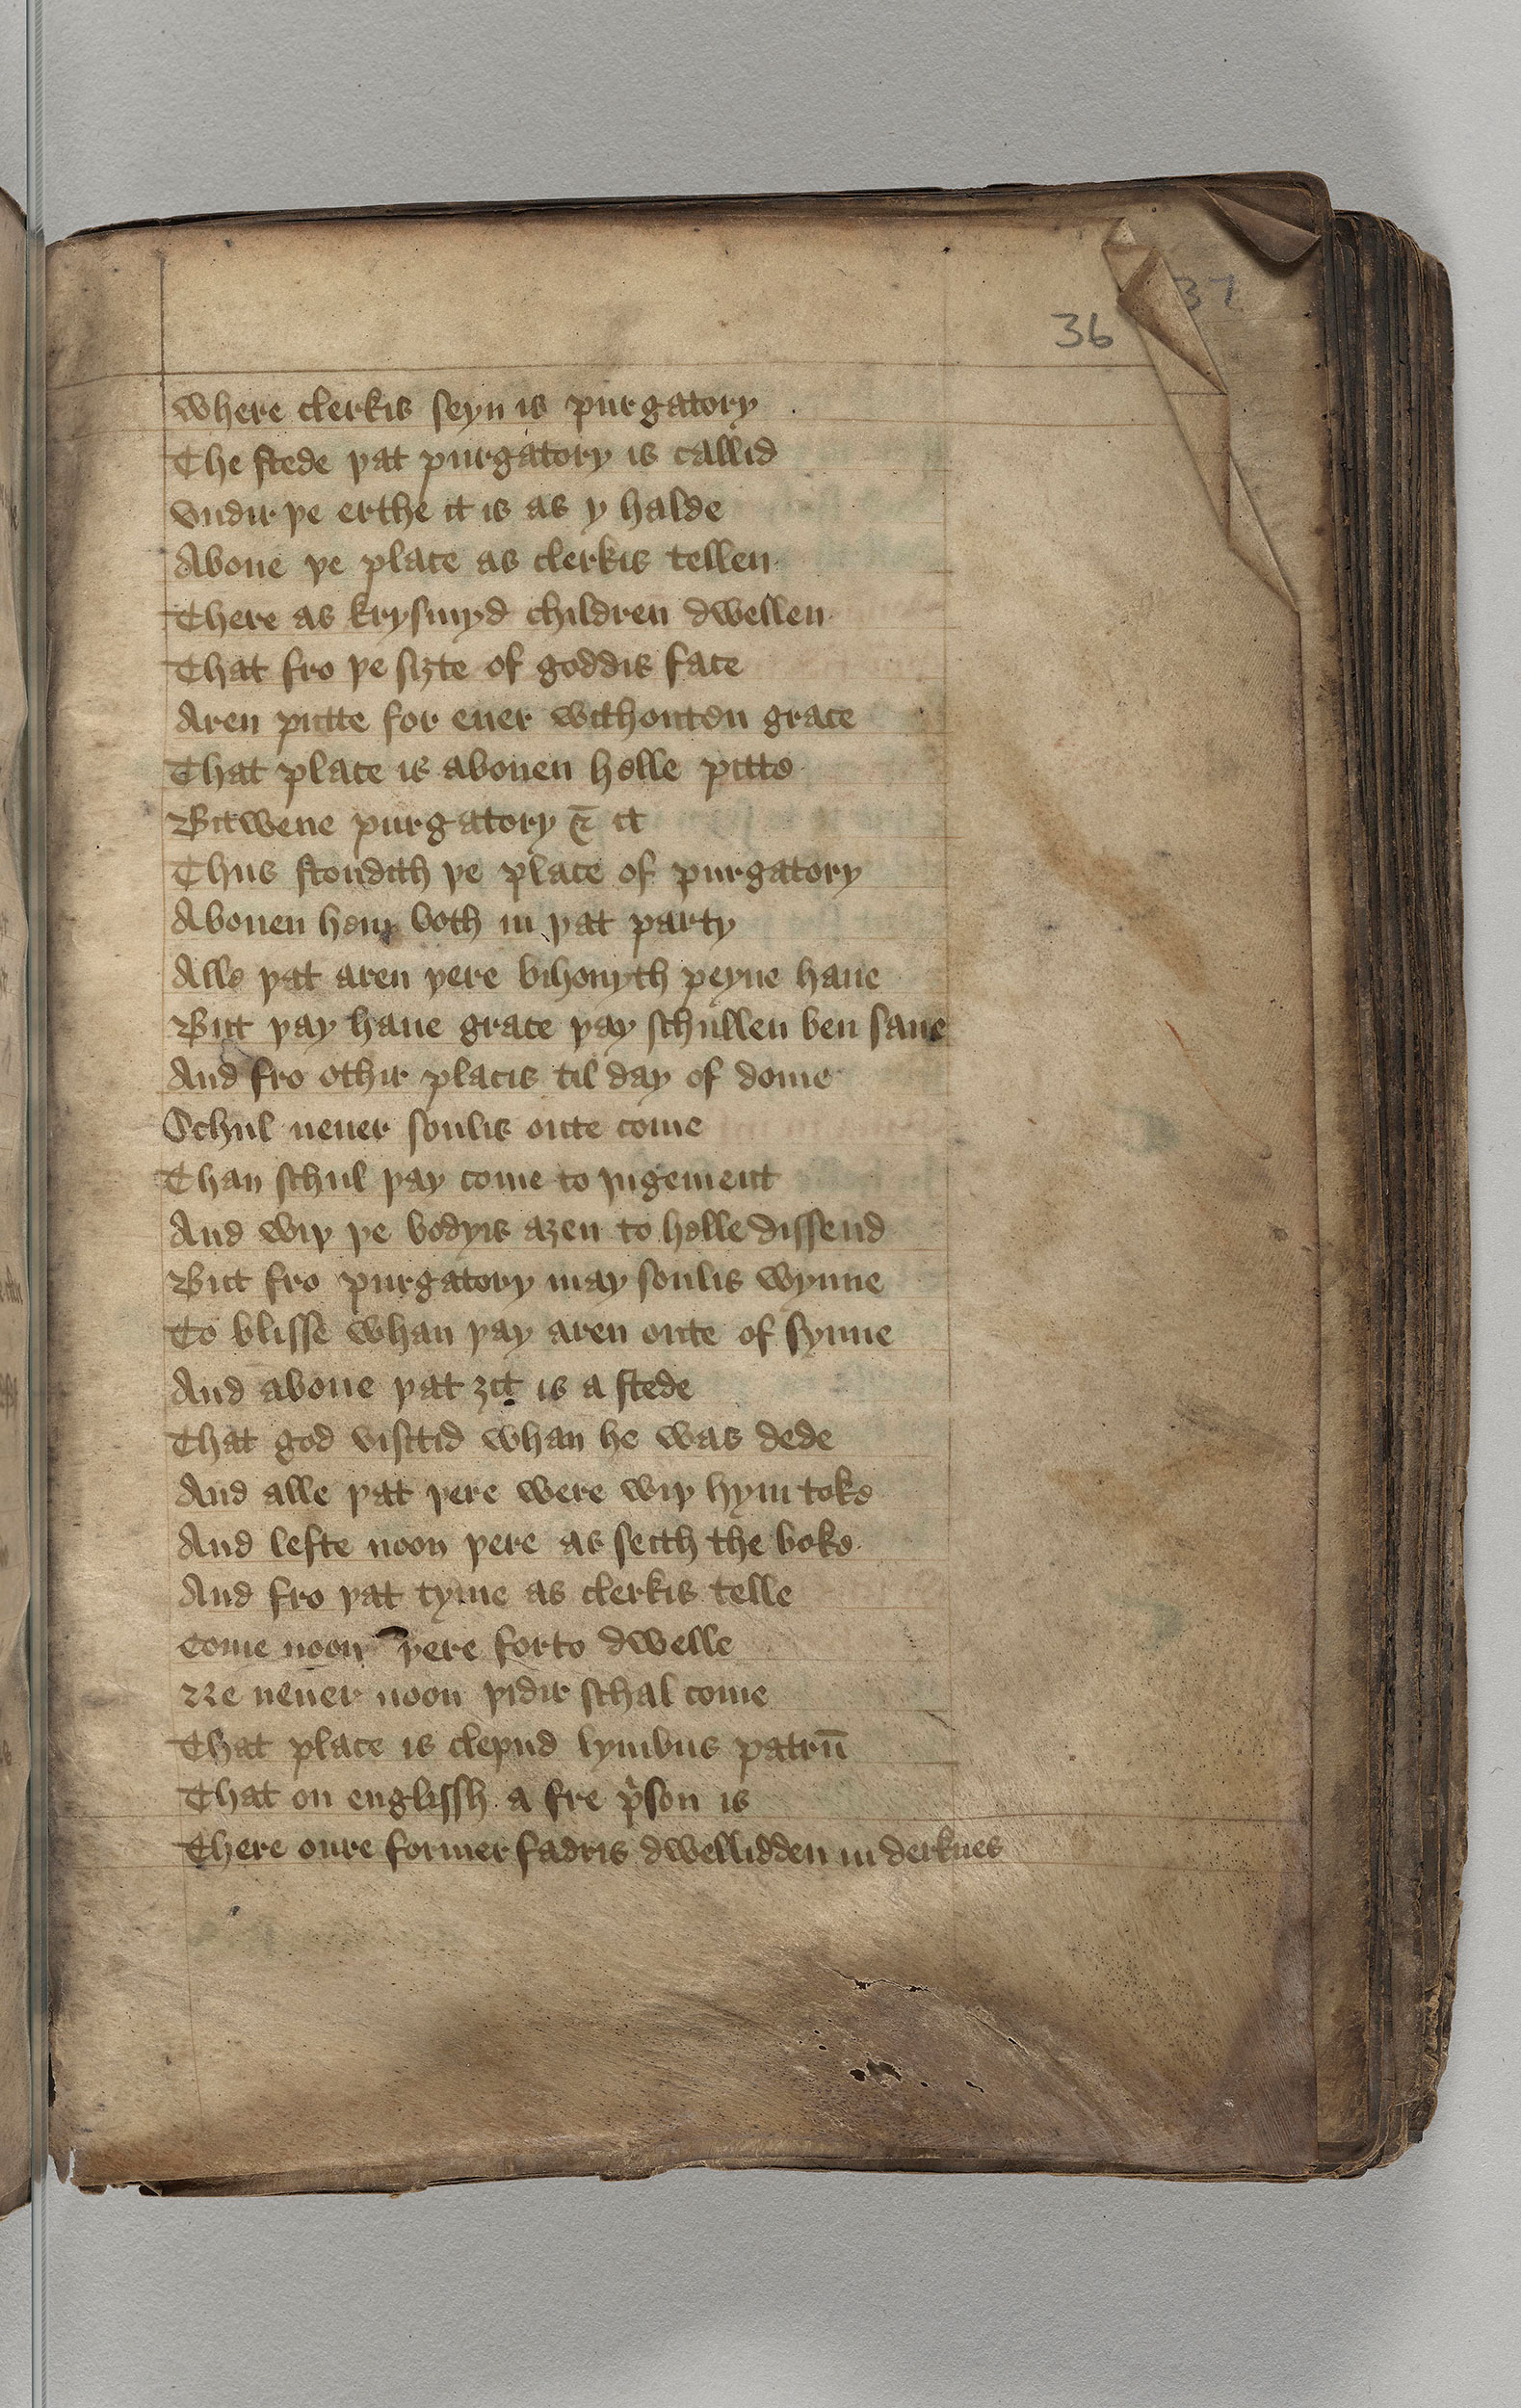 37
36
where clerkis seyn is purgatory
The stede þat purgatory is callid
Vndir þe erthe it is as y halde
Aboue þe place as clerkis tellen
There as krysmyd children dwellen
That fro þe siȝte of goddis face
Aren putte for euer withouten grace
That place is abouen helle pitte
Bitwene purgatory & it
Thus stondith þe place of purgatory
Abouen hem both in þat party
Alle þat aren þere bihouyth peyne haue
But þay haue grace þay schullen ben saue
And fro othir placis til day of dome
Schul neuer soulis oute come
Than schul þay come to iugement
And wiþ þe bodyis aȝen to helle dissend
But fro purgatory may soulis wynne
To blisse whan þay aren oute of synne
And aboue þat ȝit is a stede
That god visitid whan he was dede
And alle þat þere were wiþ hym toke
And lefte noon þere as seith the boke
And fro þat tyme as clerkis telle
Come noon þere forto dwelle
Ne neuer noon þidir schal come
That place is clepud lymbus patrū
That on englissh a fre pͥson is
There oure former fadris dwellidden in derknes